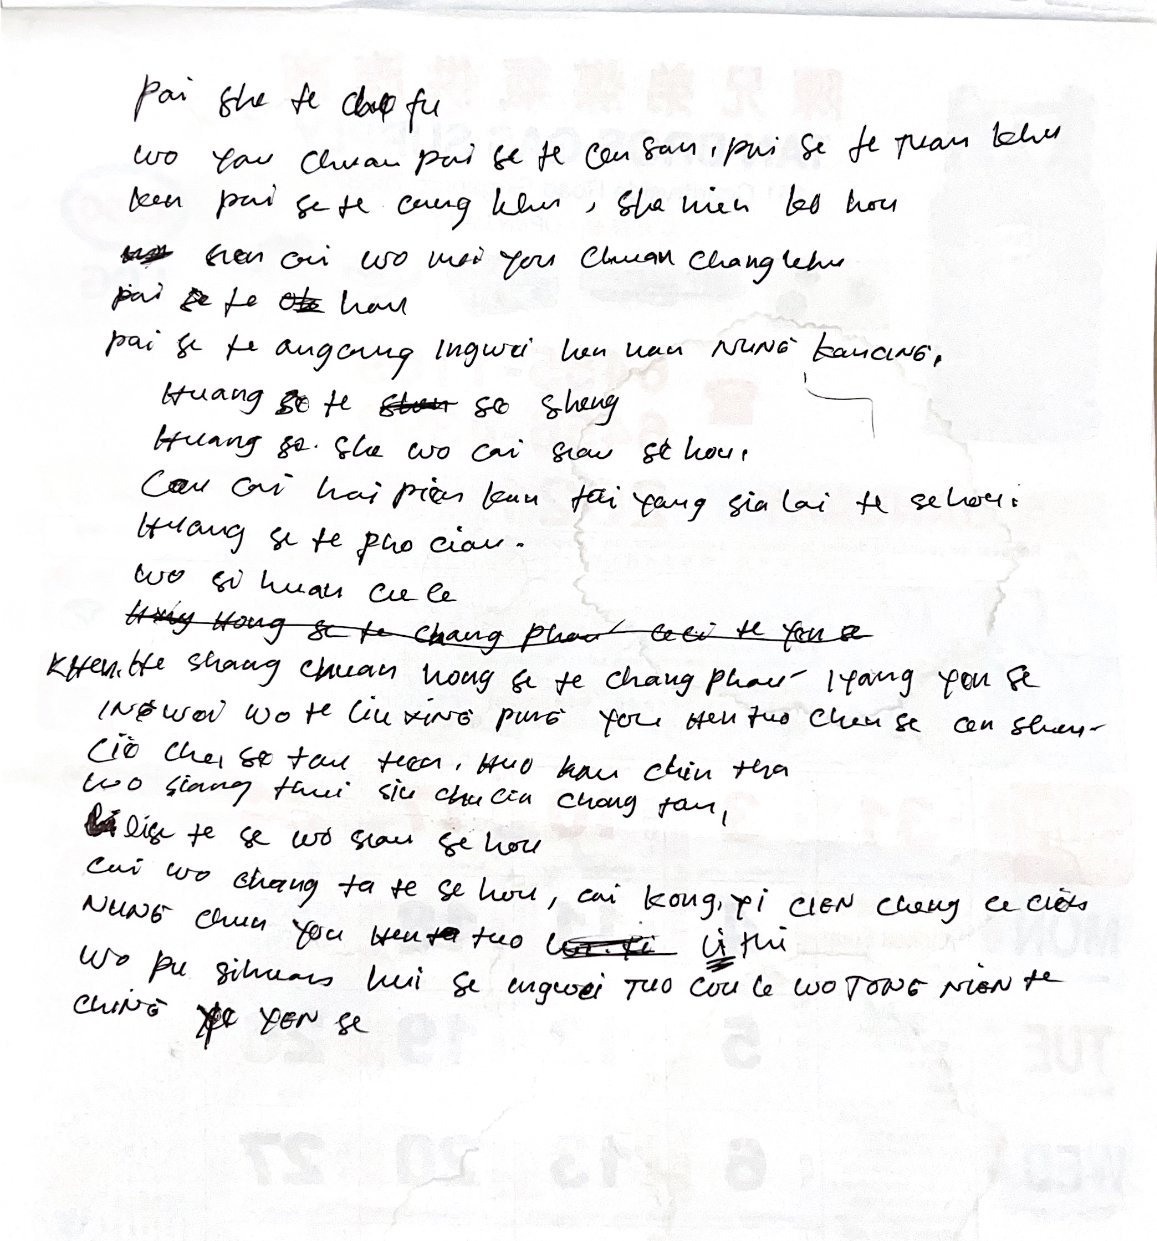 pai she te
wo yau chuan pai se te cen san, pai se te tuan khu
ken pai se te cang khu, sha nien ko hou
sien cai wo mei you chuan changkhu
pai se te hau
pai se te angcung Ingwei hen nan NUNG kancing,
Huang se te se sheng
Huang se. she wo cai siau se hou,
Cau cai hai pien kan tai yang sia lai te sehou.
Huang se te pho ciau.
wo si huan cu le
Hong se te chang phau te you
KHen. He shang chuan hong se te chang phau - Iyang yen se
INGWOI wo te liu xing pung you Hen tuo chen se cen shan -
Cio che, se tau tuan, Huo kau chin tha
wo siang tuui siu chu cia chang tau,
lise te se wo siau se hou
cai wo chang ta te se hou, cai kong, yi CIEN chang ce cien
NUNG chun you Hen tuo li thi
wo pu sihuan hui se ingwei TUO COU le WO TONG NIEN te
CHING YEN se
陳兄弟煤氣供應商
GAS SUPPLY
31
MON
12
TUE
5
19
WED
6
13
20
27